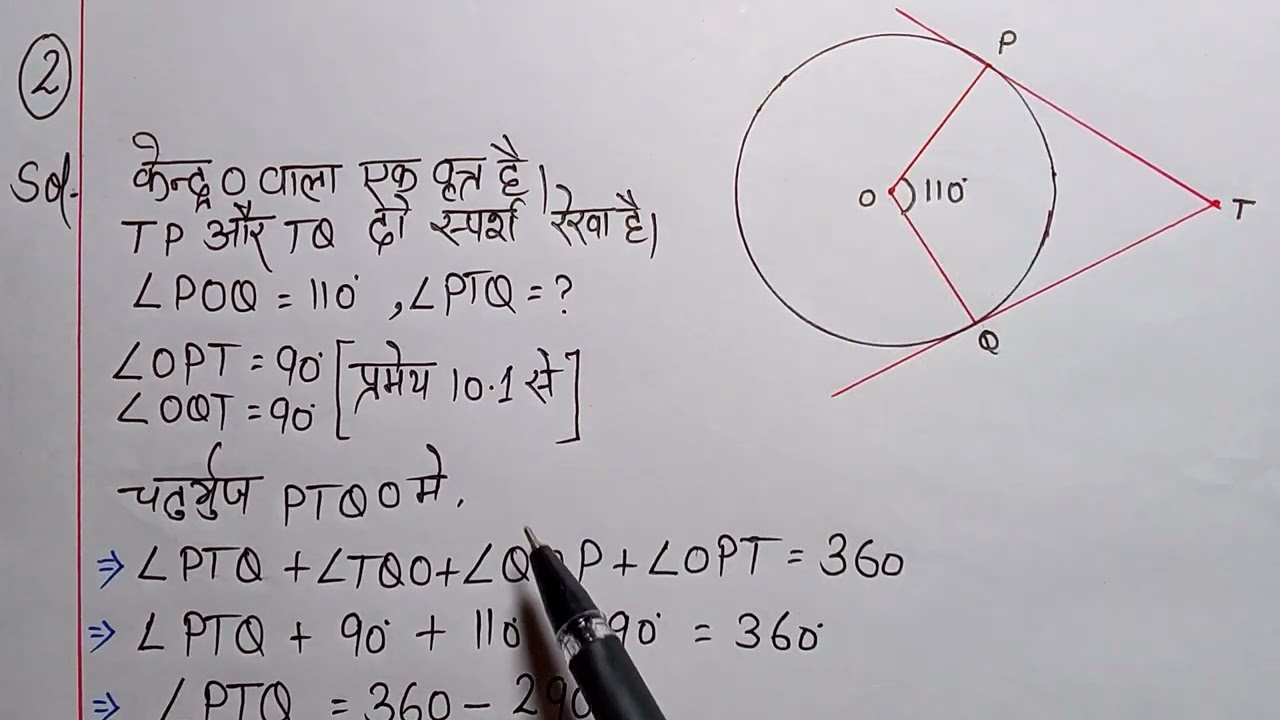 2
Sol.
केन्द्र O वाला एक वृत्त है।
TP और TQ दो स्पर्श रेखा है।
∠POQ = 110° , ∠PTQ = ?
∠OPT = 90°
∠OQT = 90°
[प्रमेय 10.1 से]
चतुर्भुज PTQO मे,
⇒ ∠PTQ + ∠TQO + ∠QOP + ∠OPT = 360
⇒ ∠PTQ + 90° + 110° 90° = 360°
⇒ ∠PTQ = 360 - 290
P
O
110°
T
Q